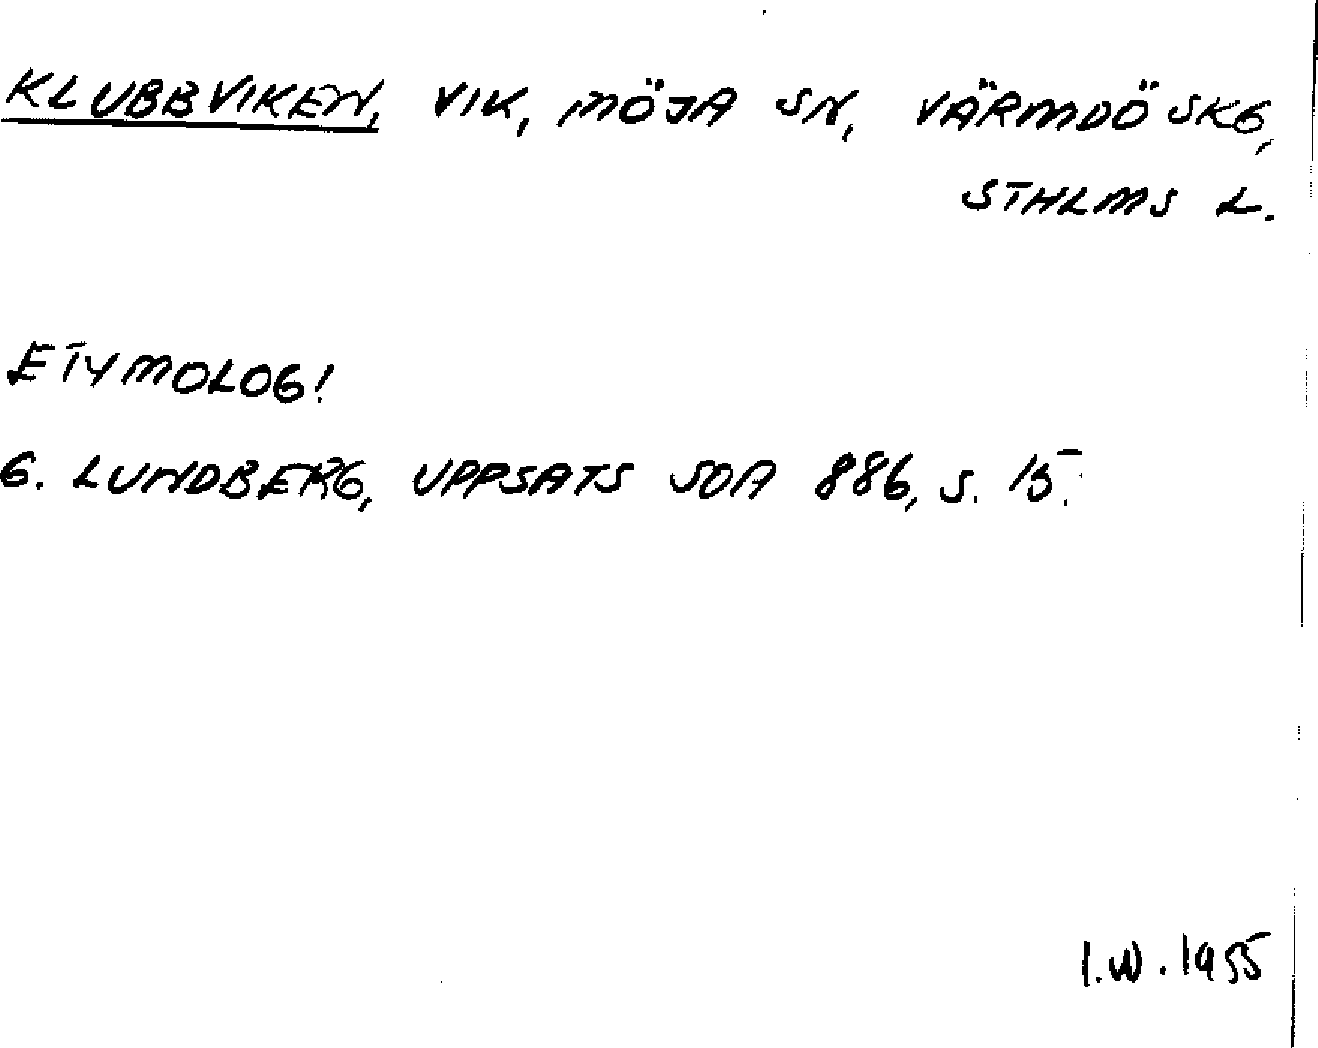 KLUBBVIKEN, VIK, MÖJA SN, VÄRMDÖ SKG,
STHLMS L.
ETYMOLOG!
G. LUNDBERG, UPPSATS SOA 886, S. 15.
I.W. 1955